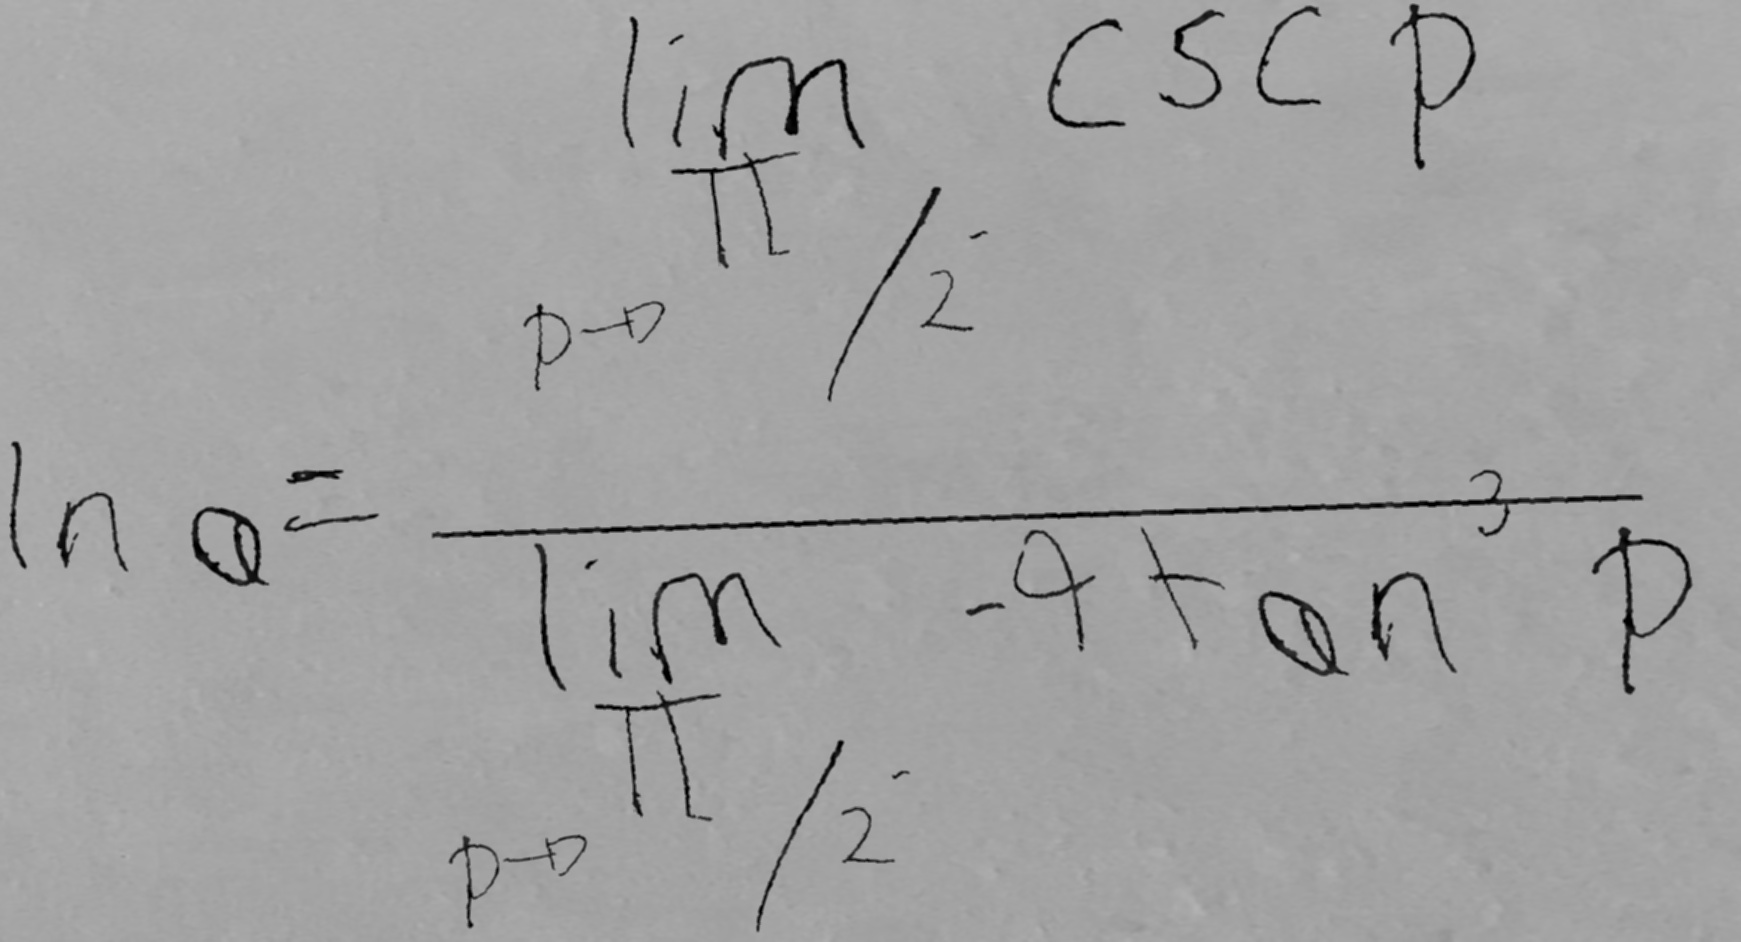 \ln a = \frac{\lim_{p \to \pi/2^-} \csc p}{\lim_{p \to \pi/2^-} -9 \tan^3 p}